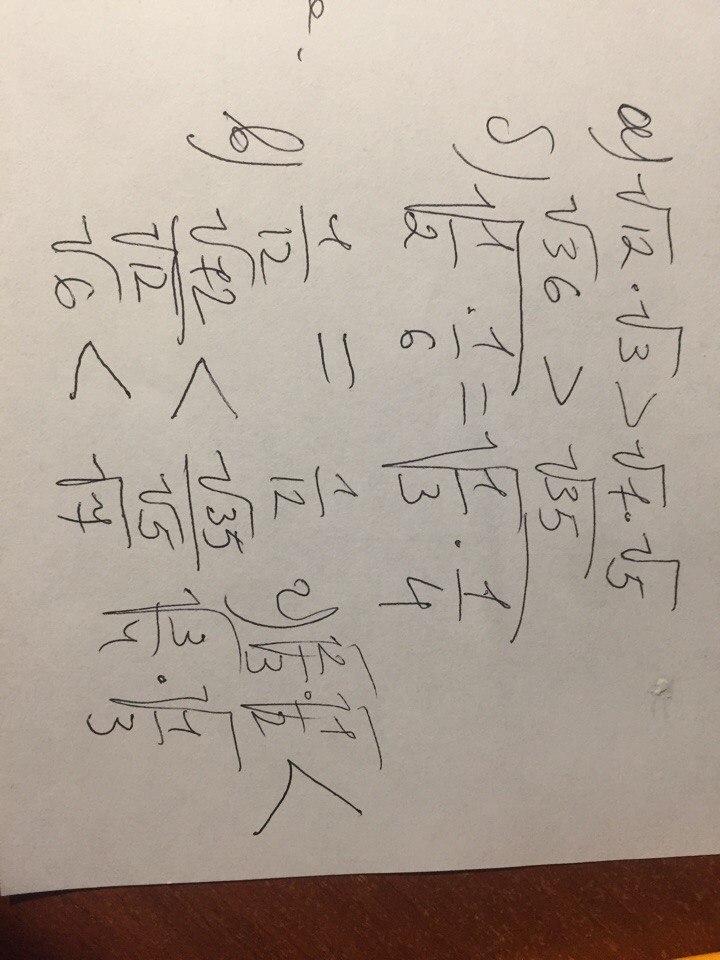 а) √12 · √3 > √7 · √5
√36 > √35
б) √(1/2 · 1/6) = √(1/3 · 1/4)
1/12 = 1/12
в) √72/√12 < √35/√5
√6 < √7
г) √(2/3) · √(1/2) <
√(3/4) · √(1/3)